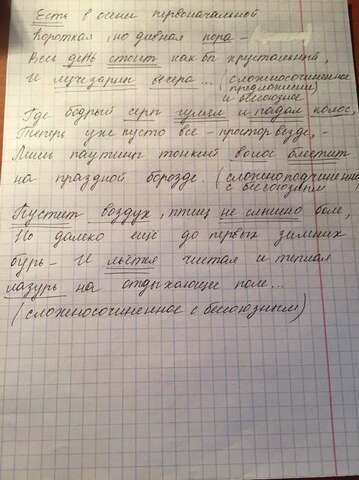 Есть в осени первоначальной
Короткая, но дивная пора -
Весь день стоит как бы хрустальный,
И лучезарны вечера... (сложносочиненное
предложение)
и бессоюзное
Где бодрый серп гулял и падал колос,
Теперь уже пусто все - простор везде, -
Лишь паутины тонкий волос блестит
на праздной борозде. (сложноподчиненное
с бессоюзным
Пустит воздух, птиц не слышно боле,
Но далеко еще до первых зимних
бурь - И льется чистая и теплая
лазурь на отдыхающее поле...
(сложносочиненное с бессоюзным)